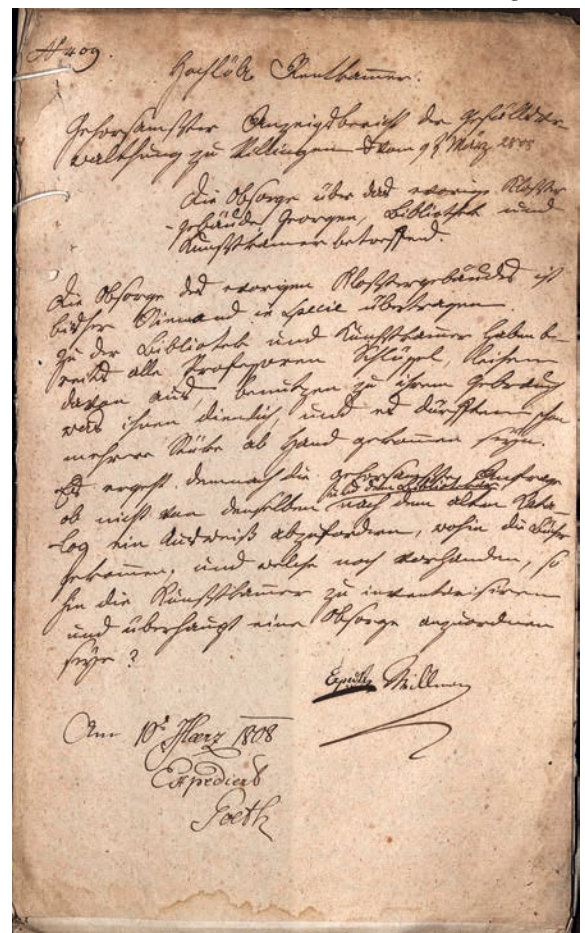 N 409.
Hochlöbl. Rentkammer.
Gehorsamster Anzeigsbericht der Gefällver-
walthung zu Villingen vom 9t März 1808
Die Obsorge über das vorige Kloster
gebäude, Georgen, Bibliothek und
Kunstkamer betreffend.
Die Obsorge des vorigen Klostergebäudes ist
bisher Niemand in specie übertragen
zu der Bibliothek und Kunstkamer haben be-
reits alle Professoren Schlüssel, leihen
davon aus, benutzen zu ihrem Gebrauch
was ihnen dienlich, und es dürften schon
mehrere Stüke ab Hand gekommen seyn.
Es ergeht demnach die gehorsamste Anfrage
und dem Bibliothekar
ob nicht von denselben nach dem alten Kata-
log ein Ausweiß abzufordern, wohin die Bücher
gekommen, und welche noch vorhanden, so
hin die Kunstkamer zu inventarisiren
und überhaupt eine Obsorge anzuordnen
seye?
Willman
Am 10t. Maerz 1808
Expediert
Goeth